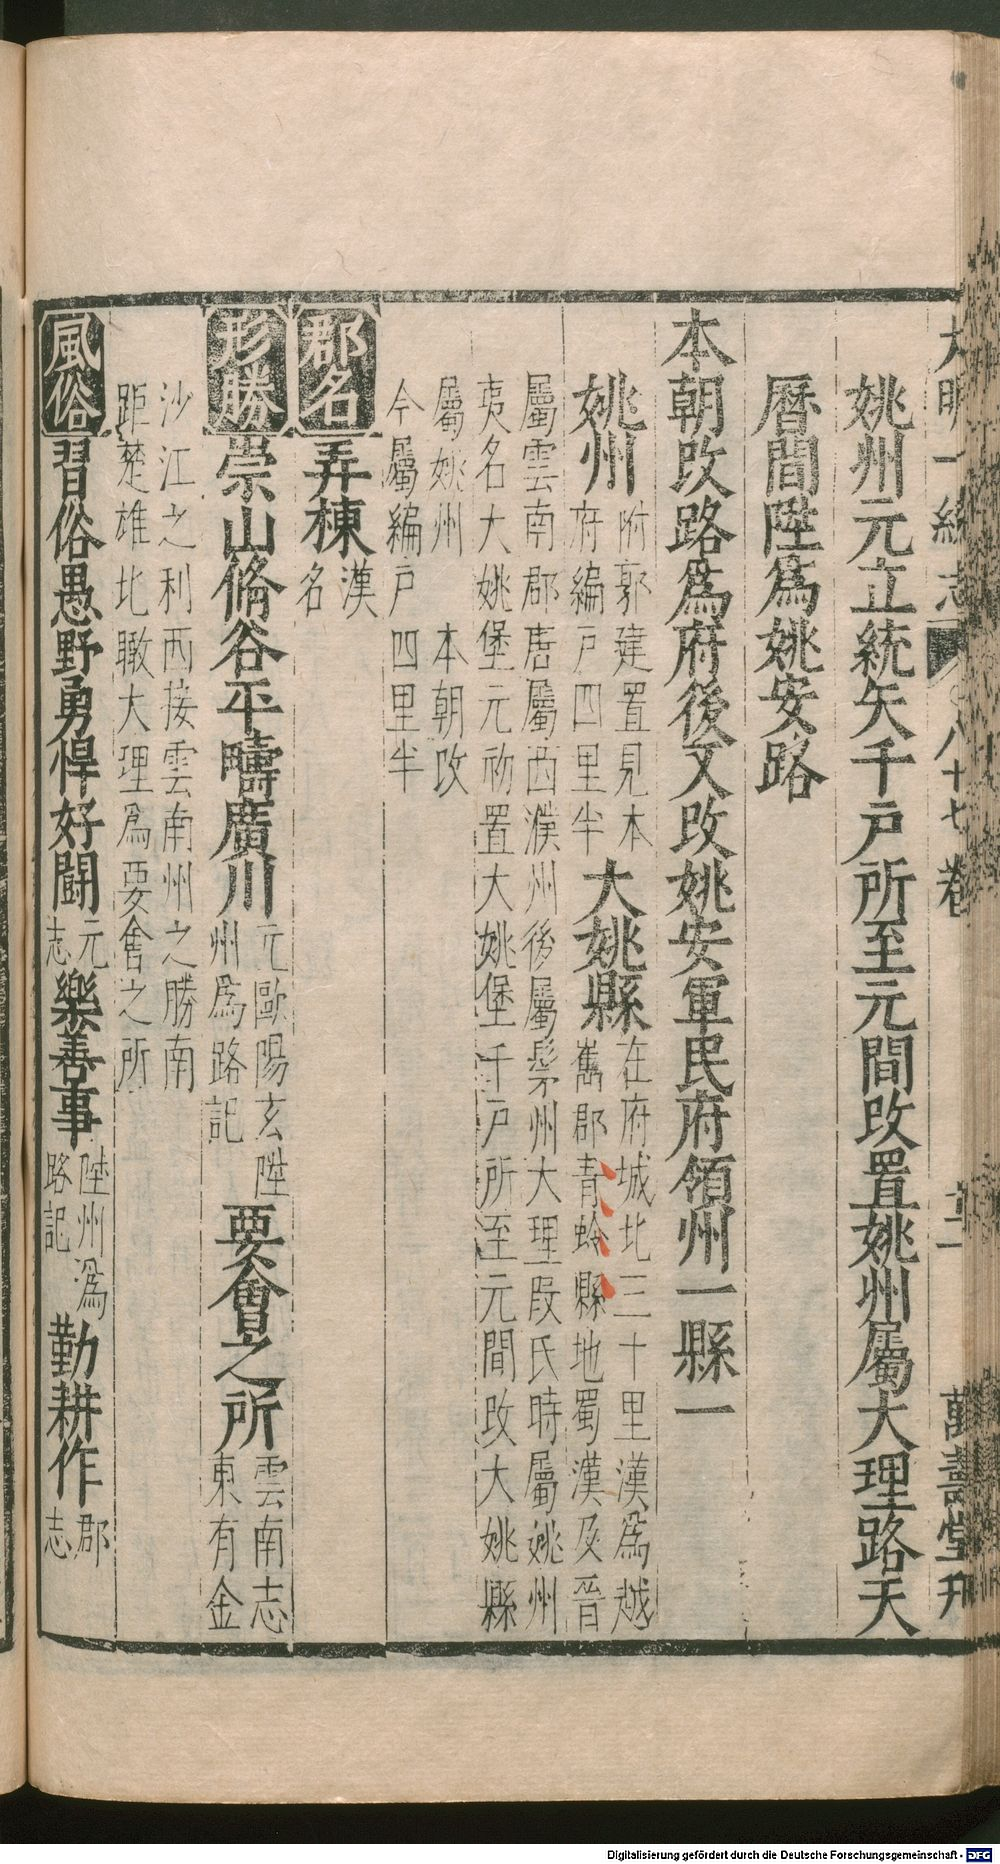 大明一統志 八十七卷 萬壽堂刊
姚州元立統矢千戶所至元間改置姚州屬大理路天
曆間陞爲姚安路
本朝改路爲府後又改姚安軍民府領州一縣一
姚州
附郭建置見本
府編戶四里半
大姚縣
在府城北三十里漢爲越
嶲郡青蛉縣地蜀漢及晉
屬雲南郡唐屬西濮州後屬髳州大理段氏時屬姚州
夷名大姚堡元初置大姚堡千戶所至元間改大姚縣
屬姚州 本朝改
今屬編戶四里半
郡名
弄棟
漢
名
形勝
崇山脩谷平疇廣川
元歐陽玄陞
州爲路記
要會之所
雲南志
東有金
沙江之利西接雲南州之勝南
距楚雄北瞰大理爲要會之所
風俗
習俗愚野勇悍好鬪
元
志
樂善事
陞州爲
路記
勤耕作
郡
志
Digitalisierung gefördert durch die Deutsche Forschungsgemeinschaft - DFG